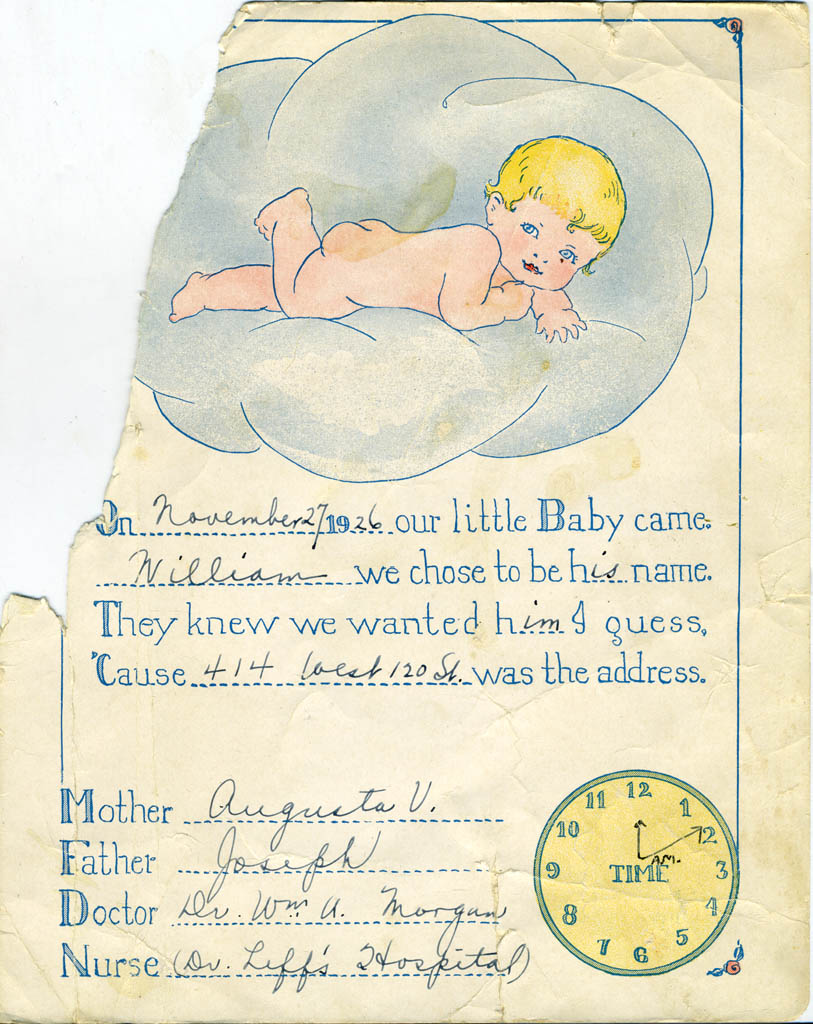 On November 27 1926 our little Baby came.
William we chose to be his name.
They knew we wanted him I guess,
'Cause 414 West 120 St. was the address.
Mother Augusta V.
Father Joseph
Doctor Dr. Wm A. Morgan
Nurse (Dr. Leff's Hospital)
12
11 1
10 2
A.M.
9 TIME 3
8 4
7 5
6